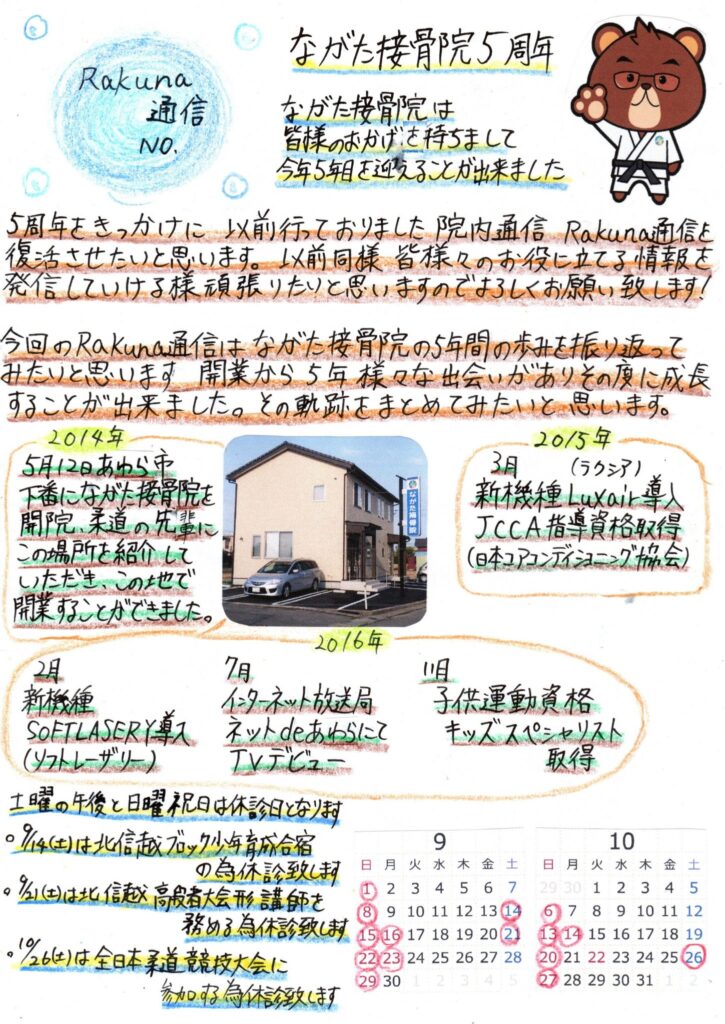 Rakuna
通信
NO.
ながた接骨院5周年
ながた接骨院は
皆様のおかげを持ちまして
今年5年目を迎えることが出来ました
5周年をきっかけに 以前行っておりました 院内通信 Rakuna通信を
復活させたいと思います。以前同様 皆様々のお役に立てる情報を
発信していける様頑張りたりと思いますのでよろしくお願い致します!
今回のRakuna通信は ながた接骨院の5年間の歩みを振り返って
みたいと思います 開業から 5年 様々な出会いがありその度に成長
することが出来ました。その軌跡をまとめてみたいと思います。
2014年
5月12日あわら市
下番にながた接骨院を
開院、柔道の先輩に
この場所を紹介して
いただき、この地で
開業することができました。
ながた接骨院
2015年
3月 (ラクシア)
新機種 Luxair導入
JCCA指導資格取得
(日本コアコンディショニング協会)
2016年
2月
新機種
SOFTLASERY導入
(ソフトレーザリー)
7月
インターネット放送局
ネットdeあわらにて
TVデビュー
11月
子供運動資格
キッズスペシャリスト
取得
土曜の午後と日曜祝日は休診日となります
。9/14(土)は北信越ブロック少年育成合宿
の為休診致します
。9/21(土)は北信越 高段者大会形 講師を
務める為休診致します
。10/26(土)は全日本柔道競技大会に
参加する為休診致します
9
日 月 火 水 木 金 土
1 2 3 4 5 6 7
8 9 10 11 12 13 14
15 16 17 18 19 20 21
22 23 24 25 26 27 28
29 30 1 2 3 4 5
10
日 月 火 水 木 金 土
29 30 1 2 3 4 5
6 7 8 9 10 11 12
13 14 15 16 17 18 19
20 21 22 23 24 25 26
27 28 29 30 31 1 2